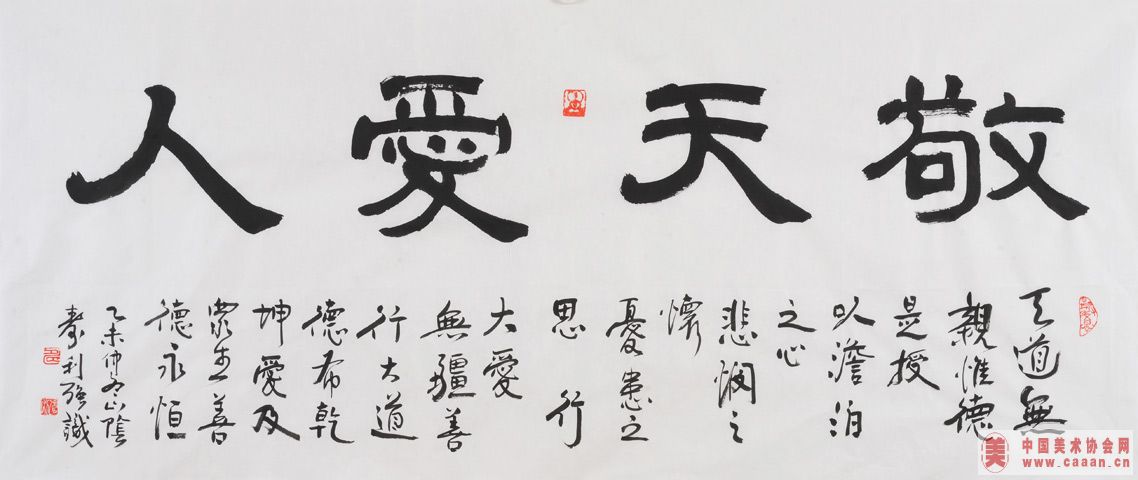 敬天愛人
天道無
親惟德
是授
以澹泊
之心
悲憫之
懷
憂患之
思行
大愛
無疆善
行大道
德布乾
坤愛及
眾生善
德永恒
乙未仲冬山陰
壽利强識
美
中国美术协会网
www.caaan.cn